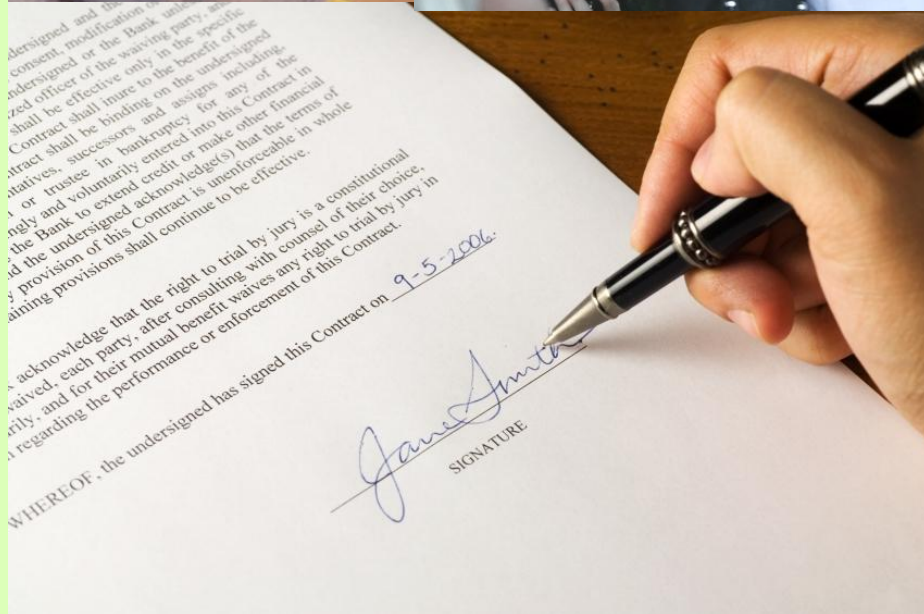 dersigned and the
consent, modification o
ndersigned or the Bank unles
zed officer of the waiving party, an
shall be effective only in the specific
Contract shall inure to the benefit of the
tract shall be binding on the undersigned
tatives, successors and assigns including,
or trustee in bankruptcy for any of the
ngly and voluntarily entered into this Contract in
the Bank to extend credit or make other financial
d the undersigned acknowledge(s) that the terms of
y provision of this Contract is unenforceable in whole
aining provisions shall continue to be effective.
acknowledge that the right to trial by jury is a constitutional
waived, each party, after consulting with counsel of their choice,
rily, and for their mutual benefit waives any right to trial by jury in
regarding the performance or enforcement of this Contract.
WHEREOF, the undersigned has signed this Contract on 9-5-2006.
Jane Smith
SIGNATURE